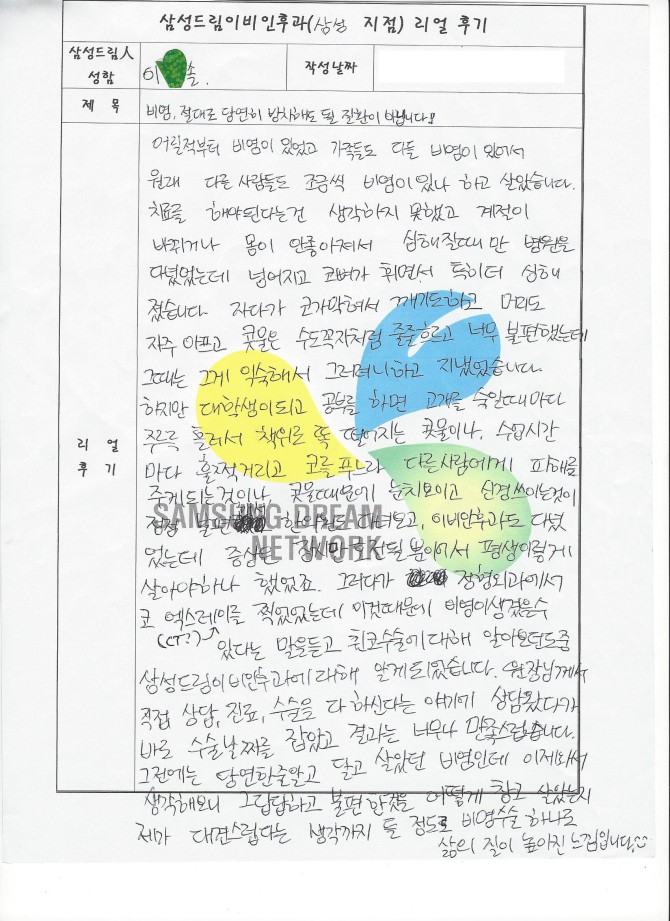 삼성드림이비인후과(삼성 지점) 리얼 후기
삼성드림人 성함
이 솔.
작성날짜
제 목
비염, 절대로 당연히 방치해도 될 질환이 아닙니다!
리 얼
후 기
어릴적부터 비염이 있었고 가족들도 다들 비염이 있어서
원래 다른 사람들도 조금씩 비염이 있나 하고 살았습니다.
치료를 해야된다는건 생각하지 못했고 계절이
바뀌거나 몸이 안좋아져서 심해질때만 병원을
다녔었는데 넘어지고 코뼈가 휘면서 특히 더 심해
졌습니다. 자다가 코가막혀서 깨기도하고 머리도
자주 아프고 콧물은 수도꼭지처럼 줄줄흐르고 너무 불편했는데
그때는 그게 익숙해서 그러려니하고 지냈었습니다.
하지만 대학생이되고 공부를 하면 고개를 숙일때마다
주르륵 흘러서 책위로 뚝 떨어지는 콧물이나, 수업시간
마다 훌쩍거리고 코를푸느라 다른사람에게 피해를
주게되는것이나 콧물때문에 눈치보이고 신경쓰이는것이
점점 불편 한의원도 다녀보고, 이비인후과도 다녔
었는데 증상은 잠시만 호전될뿐이어서 평생이렇게
살아야하나 했었죠. 그러다가 정형외과에서
코 엑스레이를 찍었었는데 이것때문에 비염이생겼을수
(CT?)
있다는 말을듣고 휜코수술에 대해 알아보던도중
삼성드림이비인후과에 대해 알게되었습니다. 원장님께서
직접 상담, 진료, 수술을 다 하신다는 얘기에 상담왔다가
바로 수술날짜를 잡았고 결과는 너무나 만족스럽습니다.
그전에는 당연한줄알고 달고 살았던 비염인데 이제와서
생각해보니 그 답답하고 불편한것을 어떻게 참고 살았는지
제가 대견스럽다는 생각까지 들 정도로 비염수술 하나로
삶의 질이 높아진 느낌입니다.
SAMSUNG DREAM
NETWORK